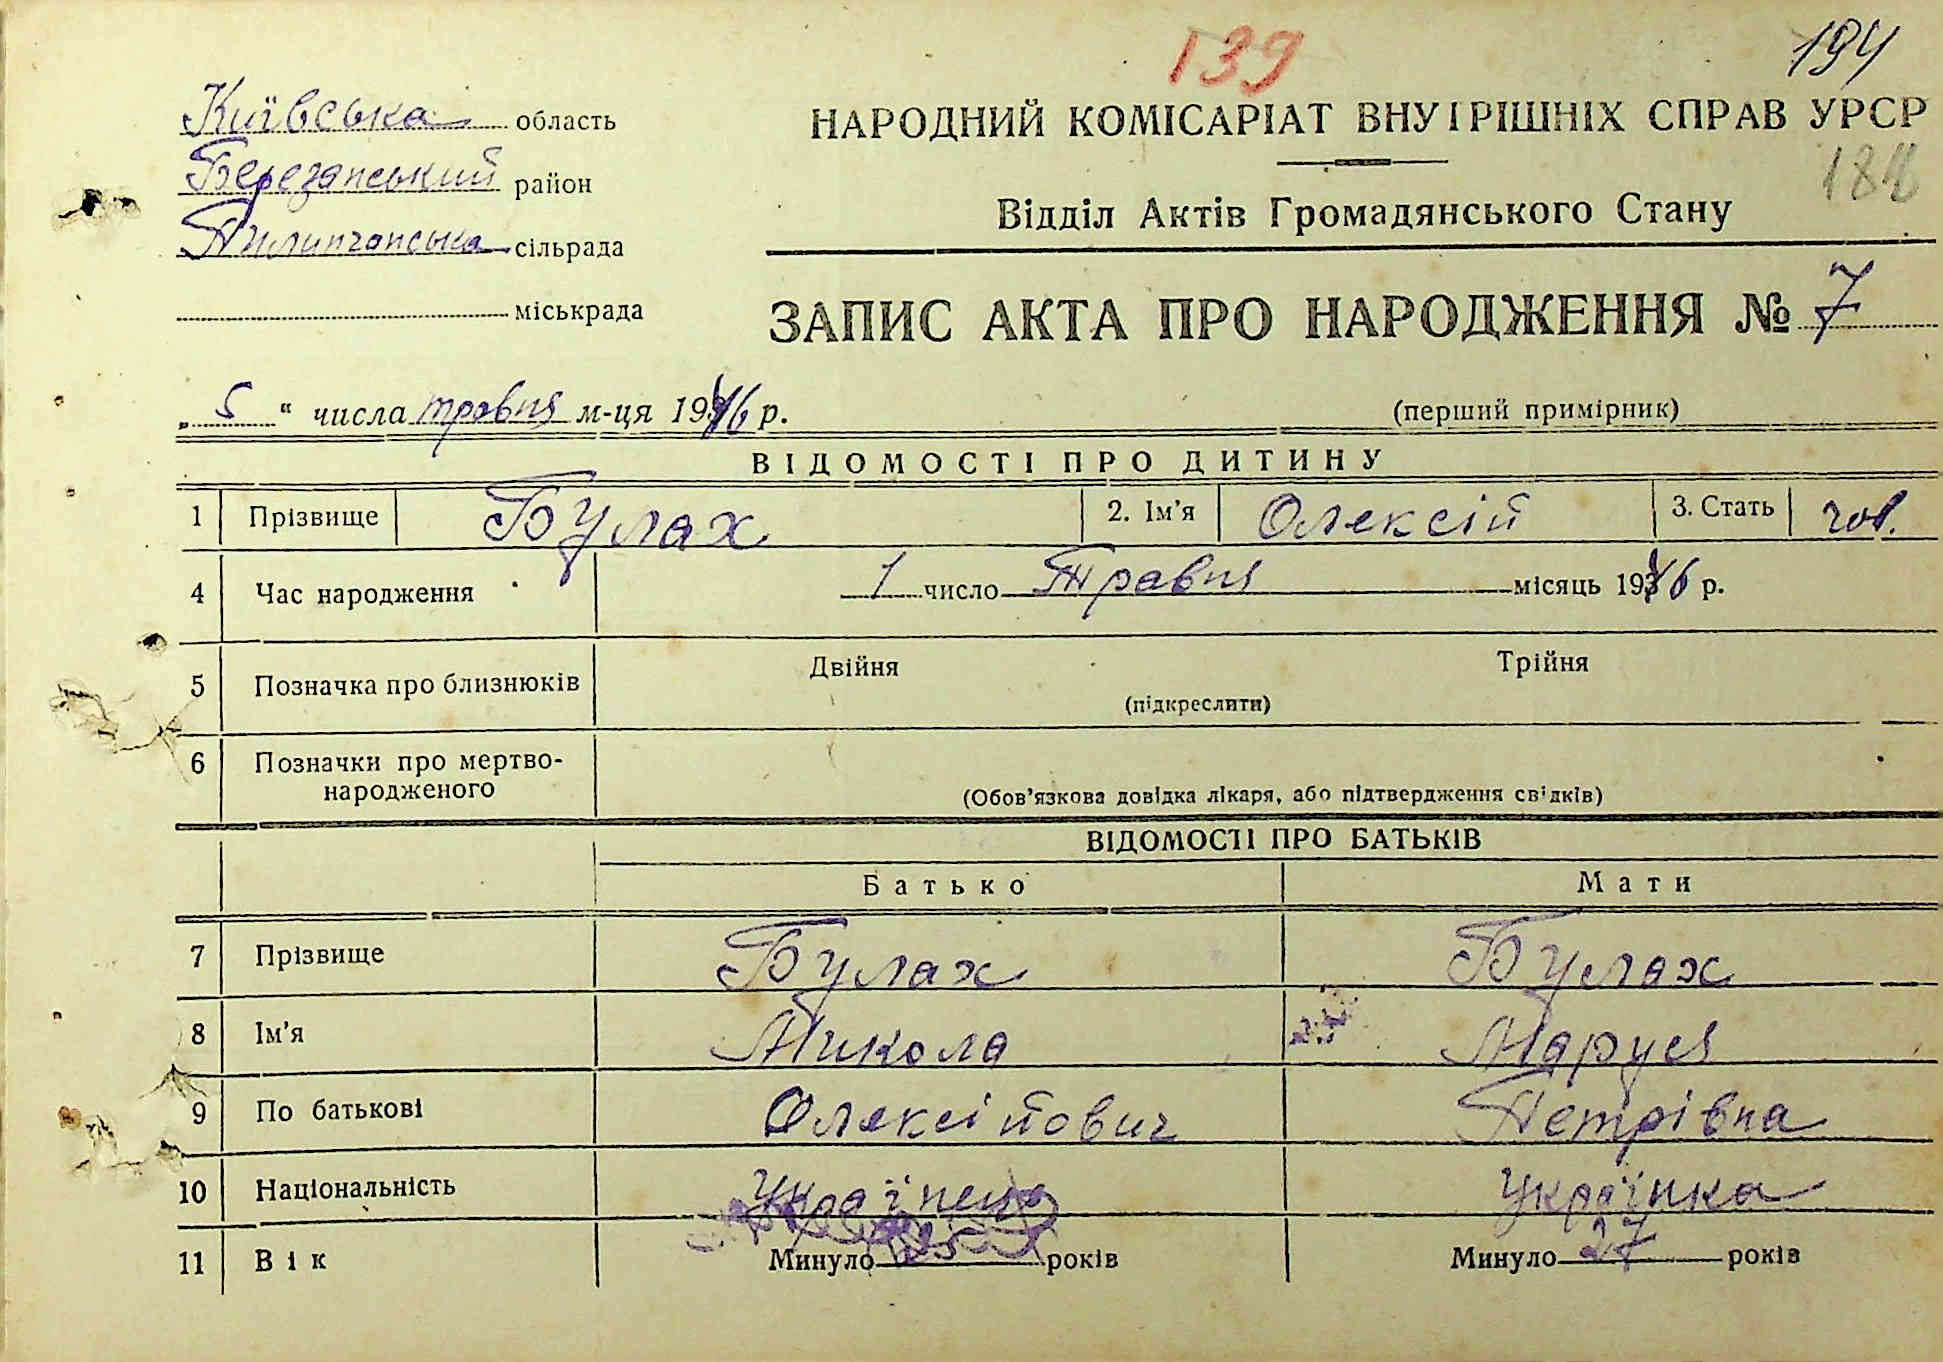 139
194
Київська область
Березанський район
Пилипчанська сільрада
міськрада
НАРОДНИЙ КОМІСАРІАТ ВНУТРІШНІХ СПРАВ УРСР
Відділ Актів Громадянського Стану
ЗАПИС АКТА ПРО НАРОДЖЕННЯ № 7
„ 5 “ числа травня м-ця 1946 р.
(перший примірник)
ВІДОМОСТІ ПРО ДИТИНУ
1 Прізвище Булах 2. Ім'я Олексій 3. Стать чол.
4 Час народження 1 число Травня місяць 1946 р.
5 Позначка про близнюків Двійня Трійня
(підкреслити)
6 Позначки про мертво-
народженого
(Обов'язкова довідка лікаря, або підтвердження свідків)
ВІДОМОСТІ ПРО БАТЬКІВ
Батько Мати
7 Прізвище Булах Булах
8 Ім'я Микола Маруся
9 По батькові Олексійович Петрівна
10 Національність Українець Українка
11 Вік Минуло 25 років Минуло 27 років